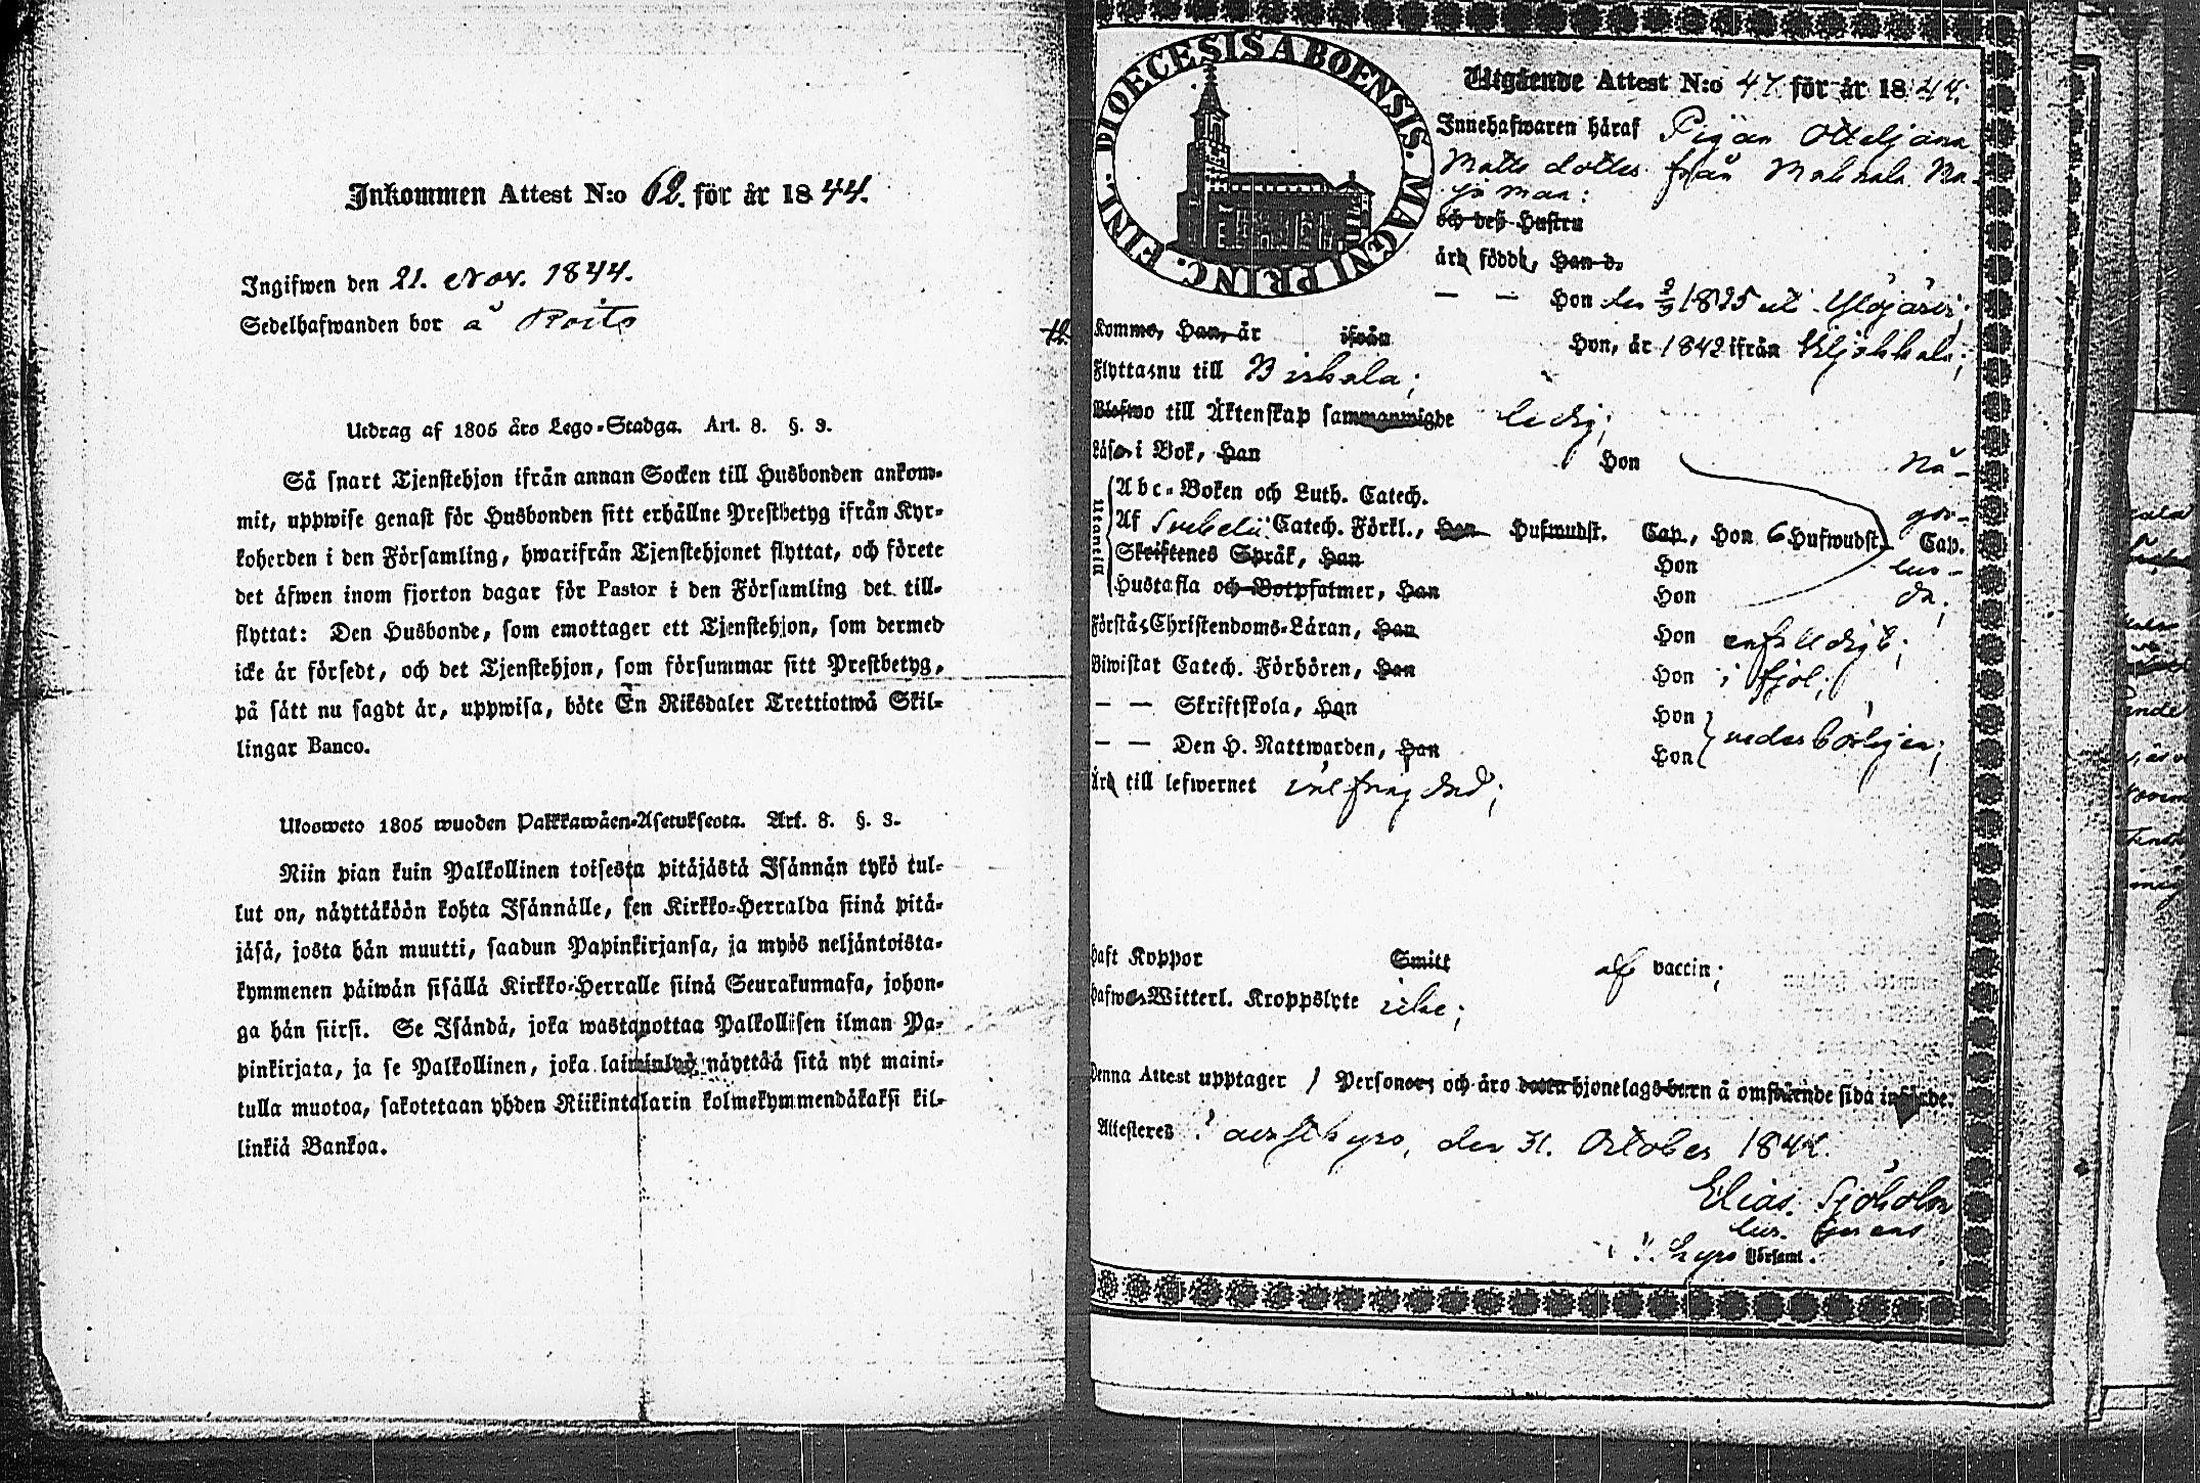 Inkommen Attest N:o 62. för år 1844.
Ingifwen den 21. Nov. 1844.
Sedelhafwanden bor å Roito
Utdrag af 1805 års Lego-Stadga. Art. 8. §. 3.
Så snart Tjenstehjon ifrån annan Socken till Husbonden ankom-
mit, uppwise genast för Husbonden sitt erhållne Prestbetyg ifrån Kyr-
koherden i den Församling, hwarifrån Tjenstehjonet flyttat, och förete
det äfwen inom fjorton dagar för Pastor i den Församling det till-
flyttat: Den Husbonde, som emottager ett Tjenstehjon, som dermed
icke är försedt, och det Tjenstehjon, som försummar sitt Prestbetyg,
på sätt nu sagdt är, uppwisa, böte En Riksdaler Trettiotwå Skil-
lingar Banco.
Ulosweto 1805 wuoden Palkkawäen-Asetuksesta. Art. 8. §. 3.
Niin pian kuin Palkollinen toisesta pitäjästä Isännän tykö tul-
lut on, näyttäköön kohta Isännälle, sen Kirkko-Herralda siinä pitä-
jäsä, josta hän muutti, saadun Papinkirjansa, ja myös neljäntoista-
kymmenen päiwän sisällä Kirkko-Herralle siinä Seurakunnasa, johon-
ga hän siirsi. Se Isändä, joka wastanottaa Palkollisen ilman Pa-
pinkirjata, ja se Palkollinen, joka laiminlyö näyttää sitä nyt maini-
tulla muotoa, sakotetaan yhden Riikintalarin kolmekymmendäkaksi kil-
linkiä Bankoa.
DIOECESIS ABOENSIS. MAGNI PRINC. FINL.
Utgående Attest N:o 47 för år 1844.
Innehafwaren häraf Pigan Otteljana
Matts dotter från Mahnala Na-
och deß Hustru
äro födde, Han d.
— — Hon den 2/3 1825 uti Ylöjärvi;
Komme, Han, år ifrån Hon, år 1842 ifrån
Flytta nu till Birkala;
Blefwo till Äktenskap sammanwigde ledig;
Läser i Bok, Han Hon Nå-
Utanläs
Abc-Boken och Luth. Catech.
Af Svebelii Catech. Förkl., Han Hufwudst. Cap., Hon 6 Hufwudst. Cap. gor-
Skriftenes Språk, Han Hon lun-
Hustafla och Botpsalmer, Han Hon da;
Förstå Christendoms-Läran, Han Hon enfalldigt;
Biwistat Catech. Förhören, Han Hon i fjol;
— — Skriftskola, Han Hon
— — Den H. Nattwarden, Han Hon vederbörligen;
Äro till lefwernet välfrägdad;
Haft Koppor Smitt af vaccin;
Hafwa Witterl. Kroppslyte icke;
Denna Attest upptager 1 Personer och äro deras hjonelagsbarn å omstående sida införde.
Attesteres i Tavastkyro, den 31. October 1844.
Elias Sjöholm
kyro Församl.